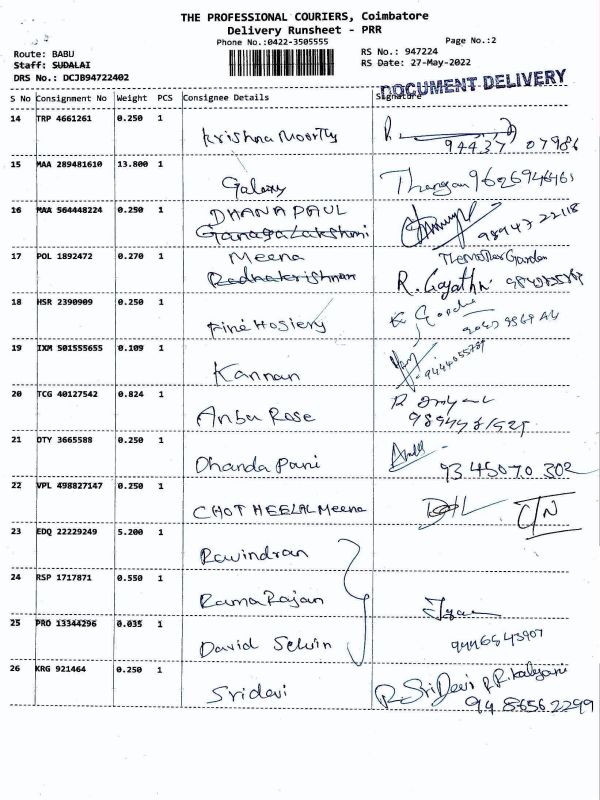 THE PROFESSIONAL COURIERS, Coimbatore
Delivery Runsheet - PRR
Phone No.:0422-3505555
Page No.:2
Route: BABU
RS No.: 947224
Staff: SUDALAI
RS Date: 27-May-2022
DRS No.: DCJB94722402
DOCUMENT DELIVERY
S No Consignment No Weight PCS Consignee Details Signature
14 TRP 4661261 0.250 1
Krishna Moorthy
94437 07986
15 MAA 289481610 13.800 1
Galaxy
16 MAA 564448224 0.250 1
DHANA PAUL
Ganaga Lakshmi
98943 22118
17 POL 1892472 0.270 1
Meena
Radhakrishnan
R. Gayathri
18 HSR 2390909 0.250 1
Fine Hosiery
19 IXM 501555655 0.109 1
Kannan
9444055789
20 TCG 40127542 0.824 1
Anbu Rose
21 OTY 3665588 0.250 1
Dhanda Pani
93 45070 302
22 VPL 498827147 0.250 1
CHOTHEELAL Meena
C/N
23 EDQ 22229249 5.200 1
Ravindran
24 RSP 1717871 0.550 1
Rama Rajan
25 PRO 13344296 0.035 1
David Selvin
9446543907
26 KRG 921464 0.250 1
Sridevi
R. Sri Devi
94 86562299